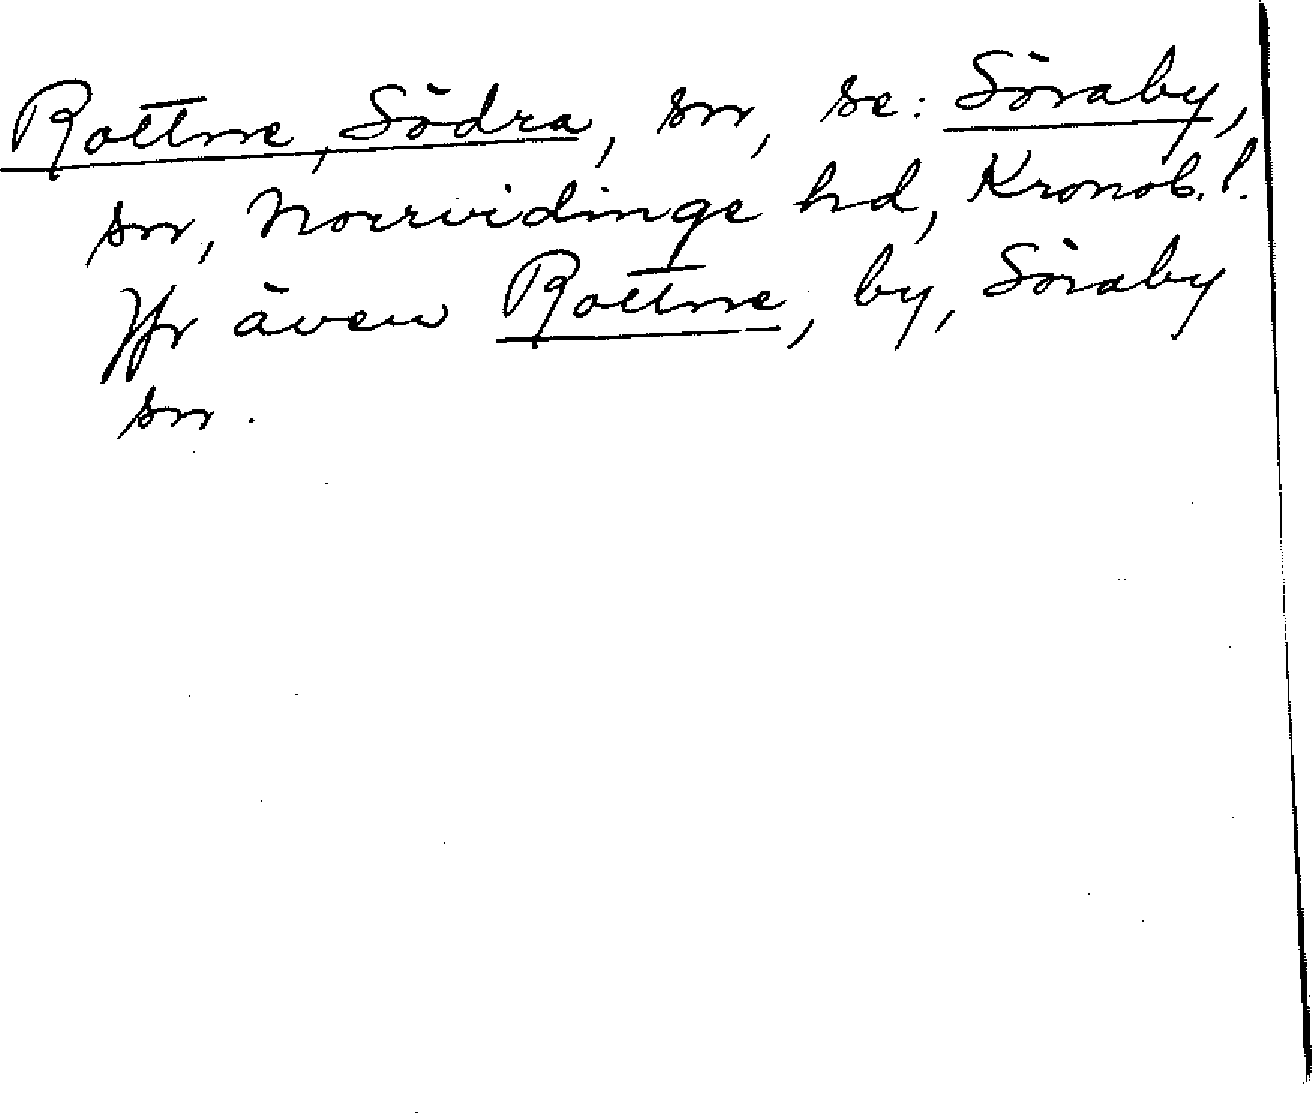 Rottne, Södra, sn, se: Söraby,
sn, Norrvidinge hd, Kronob. l.
Jfr även Rottne, by, Söraby
sn.